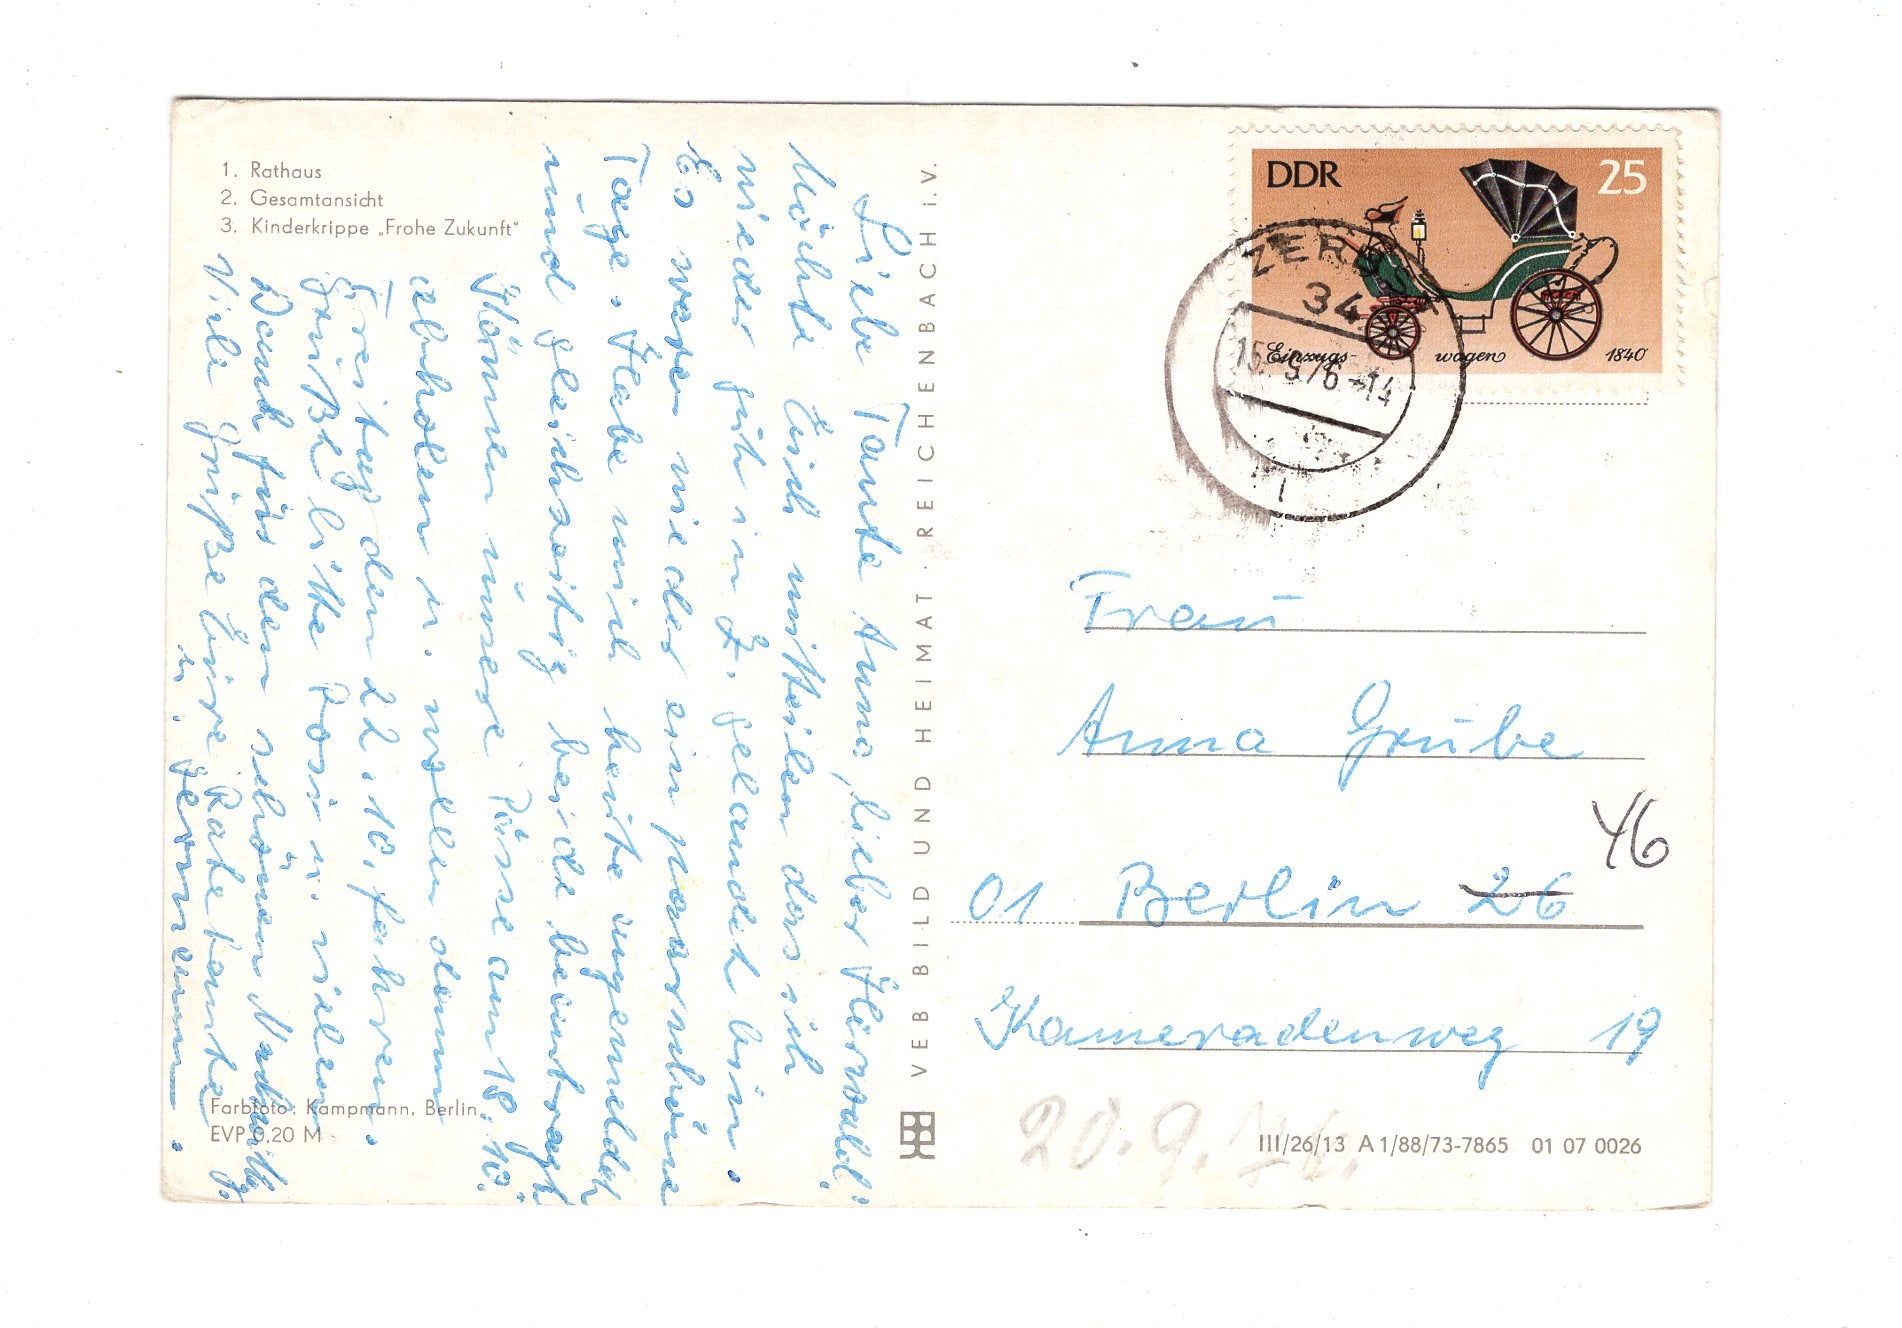 1. Rathaus
2. Gesamtansicht
3. Kinderkrippe „Frohe Zukunft"
Liebe Tante Anna, lieber Horwald!
Möchte Euch mitteilen das ich
wieder gut in Z. gelandet bin.
Es waren wieder ein paar schöne
Tage. Habe mich heute angemeldet
und gleichzeitig beide beantragt
Können unsere Pässe am 18.10.
abholen u. wollen dann
Freitag den 22.10. fahren.
Grüße bitte Rosi u. vielen
Dank für den schönen Nachmittag.
Viele Grüße Eure Patetante
u. Hermann.
Farbfoto: Kampmann, Berlin
EVP 0,20 M
VEB BILD UND HEIMAT · REICHENBACH i.V.
DDR 25
Einzugs- wagen 1840
ZERBST
34
15.-9.76-14
Frau
Anna Grube
46
01 Berlin 26
Kameradenweg 19
20.9.76.
III/26/13 A 1/88/73-7865 01 07 0026